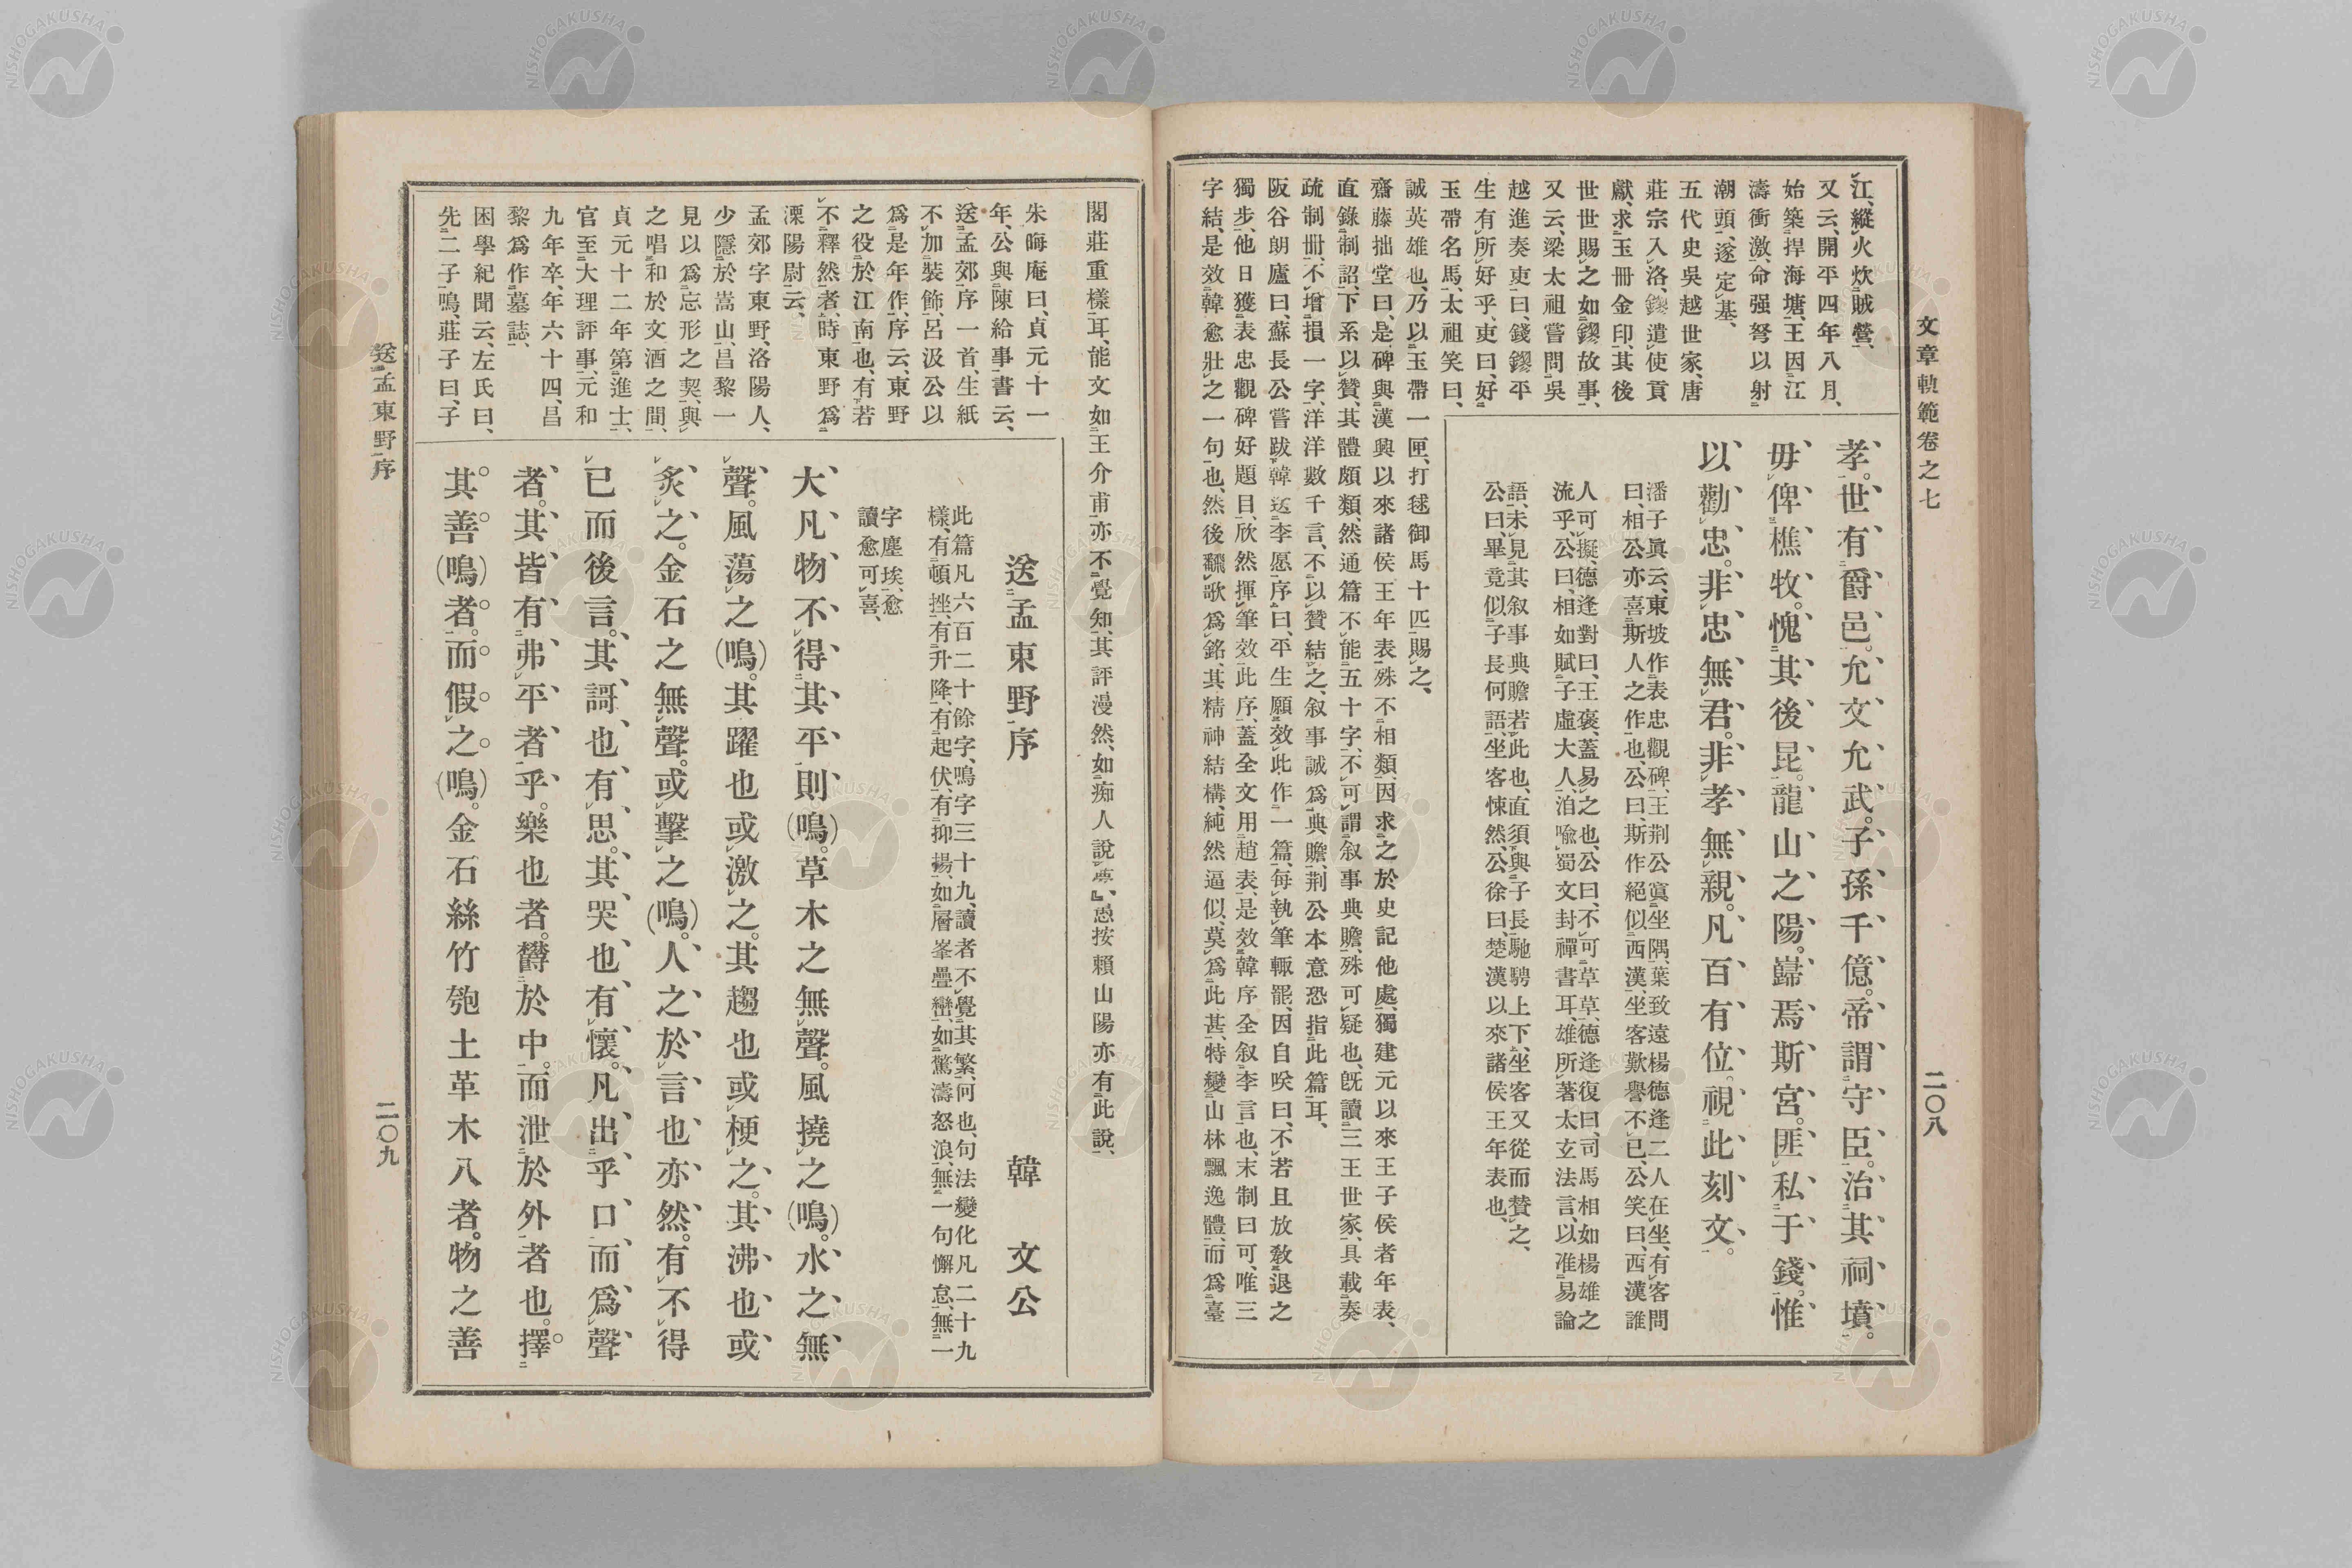 文章軌範卷之七
二〇八
江、縱火炊賊營、
又云、開平四年八月、
始築捍海塘、王因江
濤衝激、命强弩以射
潮頭、遂定基、
五代史吳越世家、唐
莊宗入洛、鏐遣使貢
獻、求玉冊金印、其後
世世賜之如鏐故事、
又云、梁太祖嘗問吳
越進奏吏曰、錢鏐平
生有所好乎、吏曰、好
玉帶名馬、太祖笑曰、
誠英雄也、乃以玉帶一匣、打毬御馬十匹賜之、
齋藤拙堂曰、是碑與漢興以來諸侯王年表殊不相類、因求之於史記他處、獨建元以來王子侯者年表、
直錄制詔、下系以贊、其體頗類、然通篇不能五十字、不可謂叙事典贍、殊可疑也、既讀三王世家、具載奏
疏制冊、不增損一字、洋洋數千言、不以贊結之、叙事誠爲典贍、荆公本意恐指此篇耳、
阪谷朗廬曰、蘇長公嘗跋韓送李愿序曰、平生願效此作一篇、每執筆輙罷、因自咲曰、不若且放敎退之
獨步、他日獲表忠觀碑好題目、欣然揮筆效此序、蓋全文用趙表、是效韓序全叙李言也、末制曰可、唯三
字結、是效韓愈壯之一句也、然後飜歌爲銘、其精神結構、純然逼似、莫爲此甚、特變山林飄逸體、而爲臺
孝。世有爵邑。允文允武。子孫千億。帝謂守臣。治其祠墳。
毋俾樵牧。愧其後昆。龍山之陽。巋焉斯宮。匪私于錢。惟
以勸忠。非忠無君。非孝無親。凡百有位。視此刻文。
潘子眞云、東坡作表忠觀碑、王荆公寘坐隅、葉致遠楊德逢二人在坐、有客問
曰、相公亦喜斯人之作也、公曰、斯作絕似西漢、坐客歎譽不已、公笑曰、西漢誰
人可擬、德逢對曰、王褒、蓋易之也、公曰、不可草草、德逢復曰、司馬相如楊雄之
流乎、公曰、相如賦子虛大人、洎喩蜀文封禪書耳、雄所著太玄法言、以准易論
語、未見其叙事典贍若此也、直須與子長馳騁上下、坐客又從而贊之、
公曰、畢竟似子長何語、坐客悚然、公徐曰、楚漢以來諸侯王年表也、
閣莊重樣耳、能文如王介甫亦不覺知、其評漫然、如痴人說夢』、愚按賴山陽亦有此說、
朱晦庵曰、貞元十一
年、公與陳給事書云、
送孟郊序一首、生紙
不加裝飾、呂汲公以
爲是年作、序云、東野
之役於江南也、有若
不釋然者、時東野爲
溧陽尉云、
孟郊字東野、洛陽人、
少隱於嵩山、昌黎一
見以爲忘形之契、與
之唱和於文酒之間、
貞元十二年第進士、
官至大理評事、元和
九年卒、年六十四、昌
黎爲作墓誌、
困學紀聞云、左氏曰、
先二子鳴、莊子曰、子
送孟東野序
韓文公
此篇凡六百二十餘字、鳴字三十九、讀者不覺其繁、何也、句法變化凡二十九
樣、有頓挫、有升降、有起伏、有抑揚、如層峯疊巒、如驚濤怒浪、無一句懈怠、無一
字塵埃、愈
讀愈可喜、
大凡物不得其平則(鳴)。草木之無聲。風撓之(鳴)。水之無
聲。風蕩之(鳴)。其躍也或激之。其趨也或梗之。其沸也或
炙之。金石之無聲。或擊之(鳴)。人之於言也亦然。有不得
已而後言。其謌也有思。其哭也有懷。凡出乎口而爲聲
者。其皆有弗平者乎。樂也者。欝於中。而泄於外者也。擇
其善(鳴)者。而假之(鳴)。金石絲竹匏土革木八者。物之善
送孟東野序
二〇九